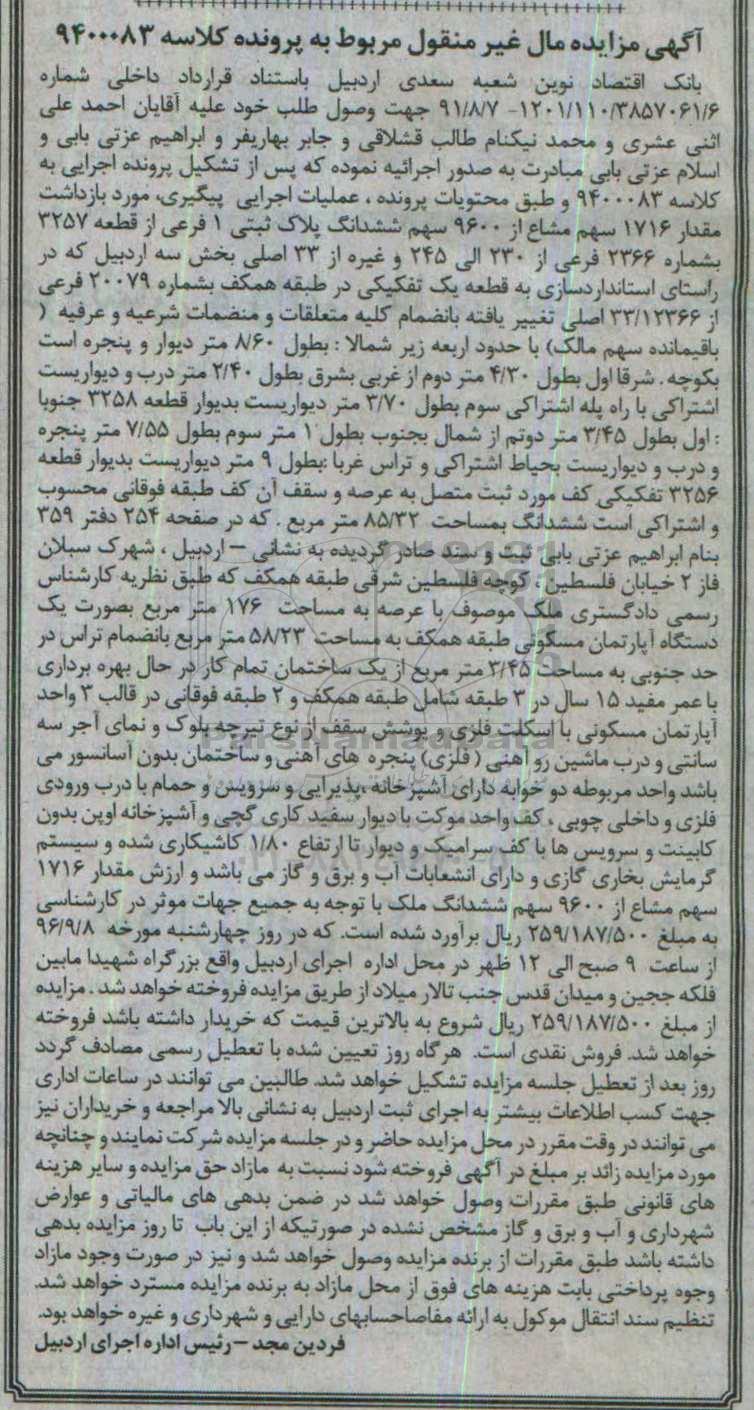 آگهی مزایده مال غیر منقول مربوط به پرونده کلاسه ۹۴۰۰۰۸۳
بانک اقتصاد نوین شعبه سعدی اردبیل باستناد قرارداد داخلی شماره
۱۲۰۱/۱۱۰/۳۸۵۷۰۶۱/۶- ۹۱/۸/۷ جهت وصول طلب خود علیه آقایان احمد علی
اثنی عشری و محمد نیکنام طالب قشلاقی و جابر بهاریفر و ابراهیم عزتی بابی و
اسلام عزتی بابی مبادرت به صدور اجرائیه نموده که پس از تشکیل پرونده اجرایی به
کلاسه ۹۴۰۰۰۸۳ و طبق محتویات پرونده ، عملیات اجرایی پیگیری، مورد بازداشت
مقدار ۱۷۱۶ سهم مشاع از ۹۶۰۰ سهم ششدانگ پلاک ثبتی ۱ فرعی از قطعه ۳۲۵۷
بشماره ۲۳۶۶ فرعی از ۲۳۰ الی ۲۴۵ و غیره از ۳۳ اصلی بخش سه اردبیل که در
راستای استانداردسازی به قطعه یک تفکیکی در طبقه همکف بشماره ۲۰۰۷۹ فرعی
از ۳۳/۱۲۳۶۶ اصلی تغییر یافته بانضمام کلیه متعلقات و منضمات شرعیه و عرفیه (
باقیمانده سهم مالک) با حدود اربعه زیر شمالا : بطول ۸/۶۰ متر دیوار و پنجره است
بکوچه . شرقا اول بطول ۴/۳۰ متر دوم از غربی بشرق بطول ۲/۴۰ متر درب و دیواریست
اشتراکی با راه پله اشتراکی سوم بطول ۳/۷۰ متر دیواریست بدیوار قطعه ۳۲۵۸ جنوبا
: اول بطول ۳/۴۵ متر دوتم از شمال بجنوب بطول ۱ متر سوم بطول ۷/۵۵ متر پنجره
و درب و دیواریست بحیاط اشتراکی و تراس غربا :بطول ۹ متر دیواریست بدیوار قطعه
۳۲۵۶ تفکیکی کف مورد ثبت متصل به عرصه و سقف آن کف طبقه فوقانی محسوب
و اشتراکی است ششدانگ بمساحت ۸۵/۳۲ متر مربع . که در صفحه ۲۵۴ دفتر ۳۵۹
بنام ابراهیم عزتی بابی ثبت و سند صادر گردیده به نشانی – اردبیل ، شهرک سبلان
فاز ۲ خیابان فلسطین ، کوچه فلسطین شرقی طبقه همکف که طبق نظریه کارشناس
رسمی دادگستری ملک موصوف با عرصه به مساحت ۱۷۶ متر مربع بصورت یک
دستگاه آپارتمان مسکونی طبقه همکف به مساحت ۵۸/۲۳ متر مربع بانضمام تراس در
حد جنوبی به مساحت ۳/۴۵ متر مربع از یک ساختمان تمام کار در حال بهره برداری
با عمر مفید ۱۵ سال در ۳ طبقه شامل طبقه همکف و ۲ طبقه فوقانی در قالب ۳ واحد
آپارتمان مسکونی با اسکلت فلزی و پوشش سقف از نوع تیرچه بلوک و نمای آجر سه
سانتی و درب ماشین رو آهنی ( فلزی) پنجره های آهنی و ساختمان بدون آسانسور می
باشد واحد مربوطه دو خوابه دارای آشپزخانه ،پذیرایی و سرویس و حمام با درب ورودی
فلزی و داخلی چوبی ، کف واحد موکت با دیوار سفید کاری گچی و آشپزخانه اوپن بدون
کابینت و سرویس ها با کف سرامیک و دیوار تا ارتفاع ۱/۸۰ کاشیکاری شده و سیستم
گرمایش بخاری گازی و دارای انشعابات آب و برق و گاز می باشد و ارزش مقدار ۱۷۱۶
سهم مشاع از ۹۶۰۰ سهم ششدانگ ملک با توجه به جمیع جهات موثر در کارشناسی
به مبلغ ۲۵۹/۱۸۷/۵۰۰ ریال برآورد شده است. که در روز چهارشنبه مورخه ۹۶/۹/۸
از ساعت ۹ صبح الی ۱۲ ظهر در محل اداره اجرای اردبیل واقع بزرگراه شهیدا مابین
فلکه ججین و میدان قدس جنب تالار میلاد از طریق مزایده فروخته خواهد شد . مزایده
از مبلغ ۲۵۹/۱۸۷/۵۰۰ ریال شروع به بالاترین قیمت که خریدار داشته باشد فروخته
خواهد شد. فروش نقدی است. هرگاه روز تعیین شده با تعطیل رسمی مصادف گردد
روز بعد از تعطیل جلسه مزایده تشکیل خواهد شد. طالبین می توانند در ساعات اداری
جهت کسب اطلاعات بیشتر به اجرای ثبت اردبیل به نشانی بالا مراجعه و خریداران نیز
می توانند در وقت مقرر در محل مزایده حاضر و در جلسه مزایده شرکت نمایند و چنانچه
مورد مزایده زائد بر مبلغ در آگهی فروخته شود نسبت به مازاد حق مزایده و سایر هزینه
های قانونی طبق مقررات وصول خواهد شد در ضمن بدهی های مالیاتی و عوارض
شهرداری و آب و برق و گاز مشخص نشده در صورتیکه از این باب تا روز مزایده بدهی
داشته باشد طبق مقررات از برنده مزایده وصول خواهد شد و نیز در صورت وجود مازاد
وجوه پرداختی بابت هزینه های فوق از محل مازاد به برنده مزایده مسترد خواهد شد.
تنظیم سند انتقال موکول به ارائه مفاصاحسابهای دارایی و شهرداری و غیره خواهد بود.
فردین مجد – رئیس اداره اجرای اردبیل